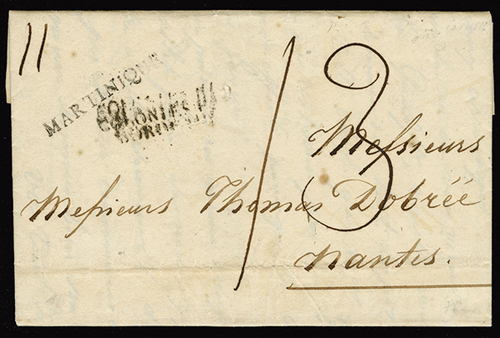 11
MARTINIQUE
COLONIES
13
Messieurs
Messieurs Thomas Dobréé
Nantes.